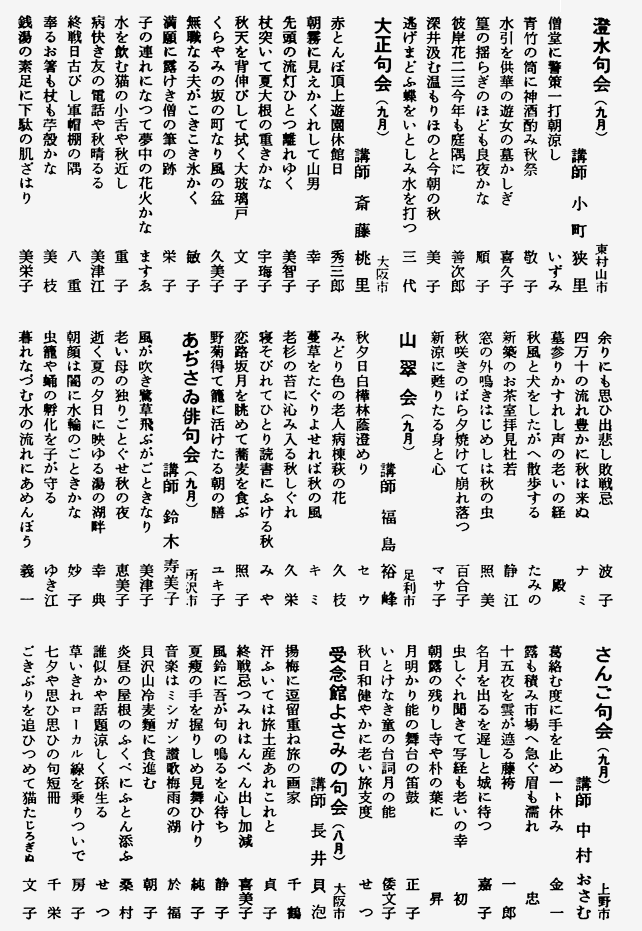 澄水句会（九月）
講師 小町 狭里 東村山市
僧堂に警策一打朝涼し いずみ
青竹の筒に神酒酌み秋祭 敬子
水引を供華の遊女の墓かしぎ 喜久子
篁の揺らぎのほども良夜かな 順子
彼岸花二三今年も庭隅に 善次郎
深井汲む温もりほのと今朝の秋 美子
逃げまどふ蝶をいとしみ水を打つ 三代
大正句会（九月）
講師 斎藤 桃里 大阪市
赤とんぼ頂上遊園休館日 秀三郎
朝霧に見えかくれして山男 幸子
先頭の流灯ひとつ離れゆく 美智子
杖突いて夏大根の重きかな 宇梅子
秋天を背伸びして拭く大玻璃戸 文子
くらやみの坂の町なり風の盆 久美子
無職なる夫がこきこき氷かく 敏子
満願に露けき僧の筆の跡 栄子
子の連れになつて夢中の花火かな ますゑ
水を飲む猫の小舌や秋近し 重子
病快き友の電話や秋晴るる 美津江
終戦日古びし軍帽棚の隅 八重
奉るお箸も杖も苧殻かな 美枝
銭湯の素足に下駄の肌ざはり 美栄子
余りにも思ひ出悲し敗戦忌 波子
四万十の流れ豊かに秋は来ぬ ナミ
墓参りかすれし声の老いの経 殿
秋風と犬をしたがへ散歩する たみの
新築のお茶室拝見杜若 静江
窓の外鳴きはじめしは秋の虫 照美
秋咲きのばら夕焼けて崩れ落つ 百合子
新涼に甦りたる身と心 マサ子
山翠会（九月）
講師 福島 裕峰 足利市
秋夕日白樺林蔭澄めり セウ
みどり色の老人病棟萩の花 久枝
蔓草をたぐりよせれば秋の風 キミ
老杉の苔に沁み入る秋しぐれ 久栄
寝そびれてひとり読書にふける秋 みや
恋路坂月を眺めて蕎麦を食ぶ 照子
野菊得て籠に活けたる朝の膳 ユキ子
あぢさゐ俳句会（九月）
講師 鈴木 寿美子 所沢市
風が吹き鷺草飛ぶがごときなり 美津子
老い母の独りごとぐせ秋の夜 恵美子
逝く夏の夕日に映ゆる湯の湖畔 幸典
朝顔は闇に水輪のごときかな 妙子
虫籠や蛹の孵化を子が守る ゆき江
暮れなづむ水の流れにあめんぼう 義一
さんご句会（九月）
講師 中村 おさむ 上野市
葛絡む度に手を止め一ト休み 金一
露も積み市場へ急ぐ眉も濡れ 忠
十五夜を雲が遮る藤袴 一郎
名月を出るを遅しと城に待つ 嘉子
虫しぐれ聞きて写経も老いの幸 初
朝露の残りし寺や朴の葉に 昇
月明かり能の舞台の笛鼓 正子
いとけなき童の台詞月の能 倭文子
秋日和健やかに老い旅支度 せつ
受念館よさみの句会（八月）
講師 長井 貝泡 大阪市
揚梅に逗留重ね旅の画家 千鶴
汗ふいては旅土産あれこれと 貞子
終戦忌つみれはんぺん出し加減 喜美子
風鈴に吾が句の鳴るを心待ち 静子
夏痩の手を握りしめ見舞ひけり 純子
音楽はミシガン讃歌梅雨の湖 於福
貝沢山冷麦麺に食進む 朝子
炎昼の屋根のふくべにふとん添ふ 桑村
誰似かや話題涼しく孫生る せつ
草いきれローカル線を乗りついで 房子
七夕や思ひ思ひの句短冊 千栄
ごきぶりを追ひつめて猫たじろぎぬ 文子